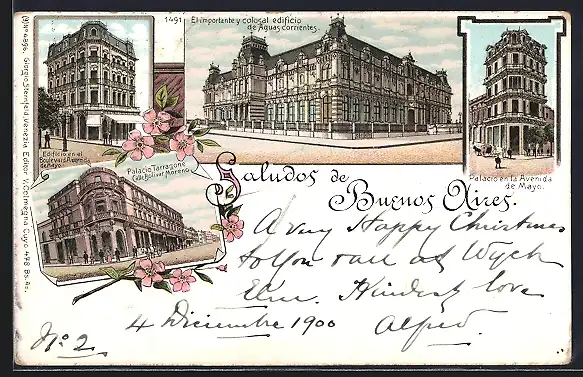 1491
El importente y colosal edificio
de Aguas corrientes.
Edificio en el
Boulevard Avenida
de Mayo.
Palacio Tarragone
Calle Bolivar Moreno
Palacio en la Avenida
de Mayo.
Saludos de
Buenos Aires.
A very Happy Christmas
to you all at Wych
Elm. Kindest love
4 Diciembre 1900 Alfred.
No. 2
Editor V. Colmegna Cuyo 478 Bs. As.